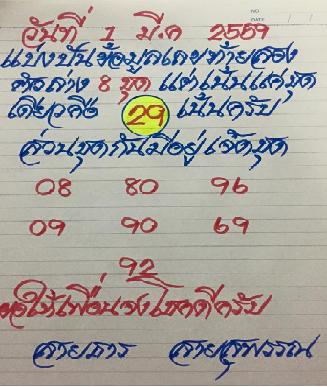 NO
DATE / /
วันที่ 1 มี.ค 2559
แบ่งปันข้อมูลเลขท้ายสอง
ตัวล่าง 8 ชุด แต่เน้นแค่ชุด
เดียวคือ 29 เน้นครับ
ส่วนชุดกันมีอยู่เจ็ดชุด
08 80 96
09 90 69
92
ขอให้เพื่อนจงโชคดีครับ
สายธาร สายสุพรรณ